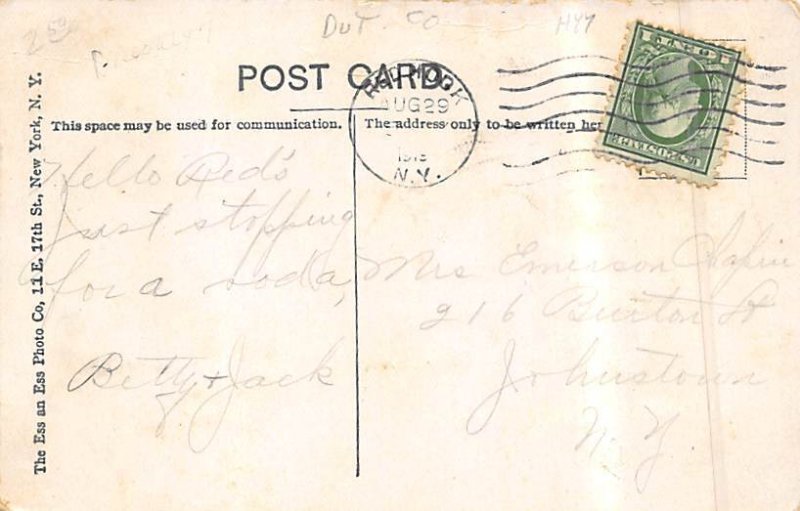 Dut. Co
POST CARD.
RED HOOK
AUG 29
N.Y.
This space may be used for communication.
The address only to be written her
The Ess an Ess Photo Co, 11 E. 17th St., New York, N. Y.
Hello Red's
Just stopping
for a soda,
Betty & Jack
Mrs Emerson Chapin
216 Burton St
Johnstown
N. Y.
U.S. POSTAGE